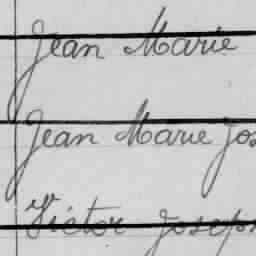 Jean Marie
Jean Marie Jos
Victor Joseph